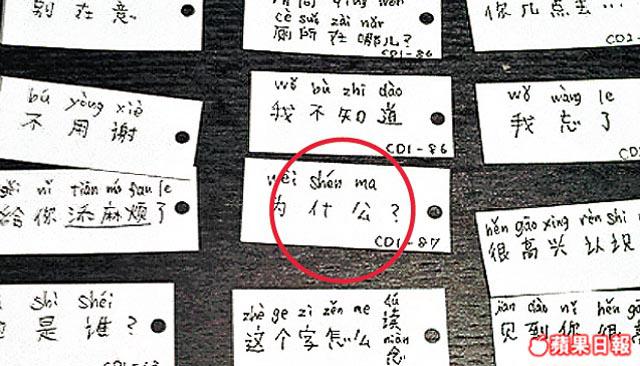 别在意
qǐng wèn
cè suǒ zài nǎr
厕所在哪儿?
CD1-86
你几点去…
CD2-
bú yòng xiè
不用谢
wǒ bù zhī dào
我不知道
CD1-86
wǒ wàng le
我忘了
gěi nǐ tiān má fan le
给你添麻烦了
wèi shén ma
为什公?
CD1-87
hěn gāo xìng rèn shi
很高兴认识
shì shéi
是谁?
zhè ge zì zěn me
这个字怎么
dú
读
niàn
念
jiàn dào nǐ hěn gāo
见到你很
蘋果日報